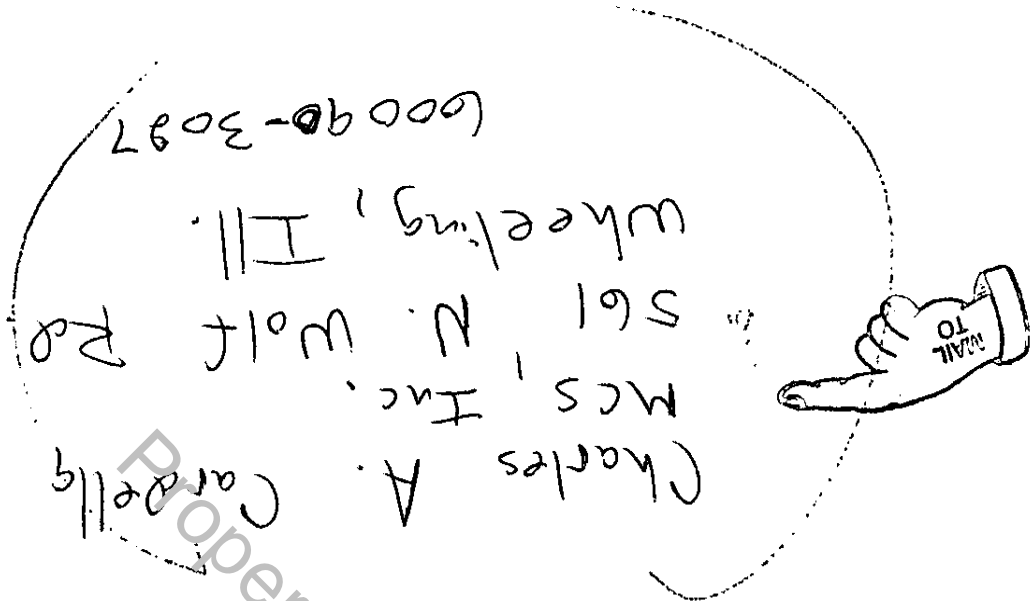 MAIL TO
Charles A. Cardella
MCS, Inc.
561 N. Wolf Rd
Wheeling, Ill.
60090-3027
Proper